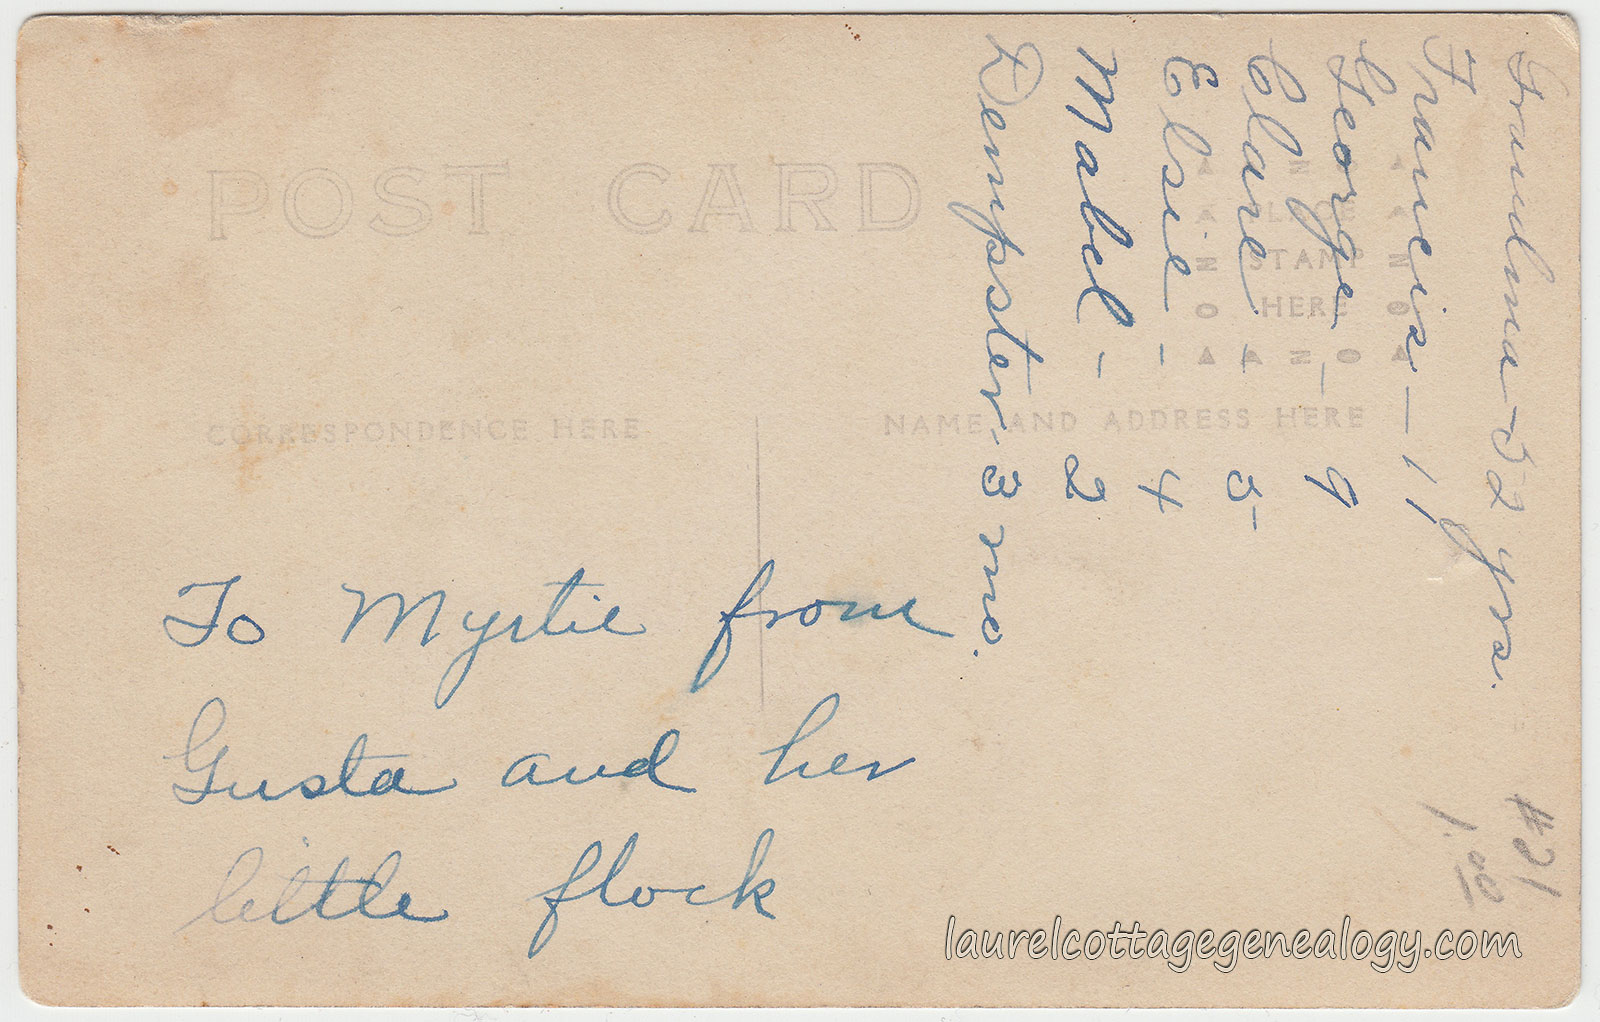 POST CARD
PLACE
STAMP
HERE
CORRESPONDENCE HERE
NAME AND ADDRESS HERE
Grandma - 52 yrs.
Francis - 11
George - 9
Clare - 5-
Elsie - 4
Mabel - 2
Dempster - 3 mo.
To Myrtie from
Gusta and her
little flock
#21
1.00
laurelcottagegenealogy.com